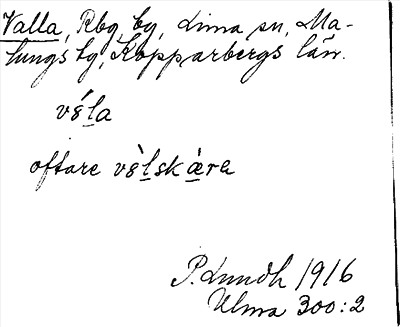 Valla, Rbg, by, Lima sn, Ma-
lungs tg, Kopparbergs län.
vé̱la
oftare vè̱lskæ̀ra
P. Lundh 1916
Ulma 300:2